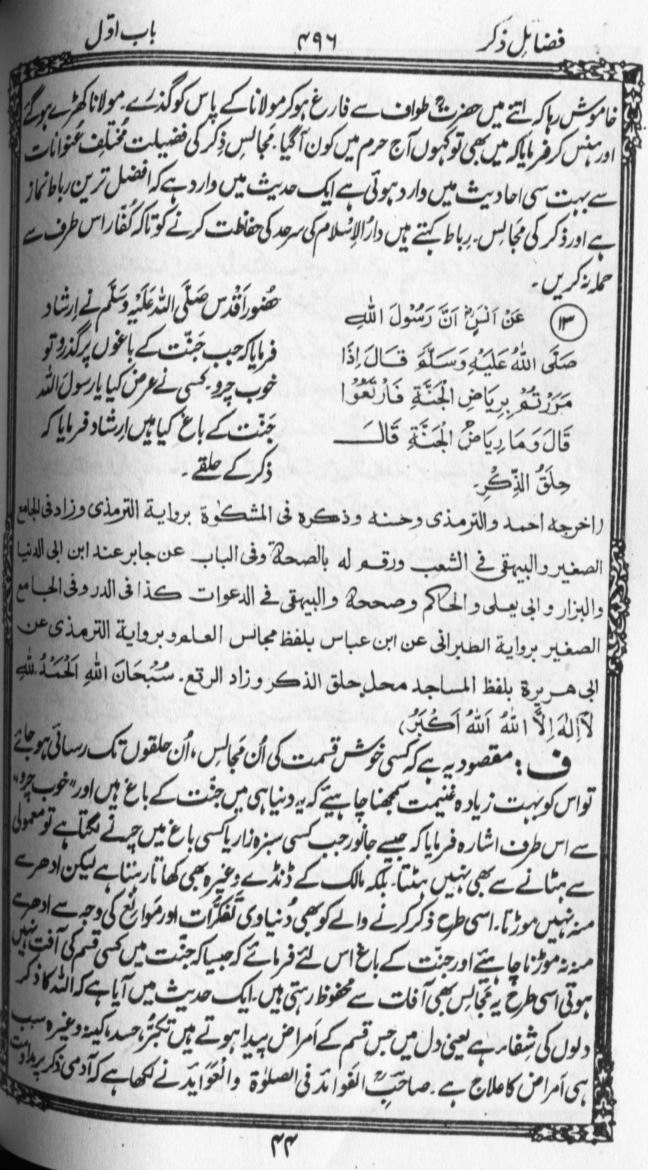 فضائل ذکر ۴۹۶ باب اوّل
خاموش رہا کہ اتنے میں حضرتؒ طواف سے فارغ ہو کر مولانا کے پاس کو گذرے۔ مولانا کھڑے ہوگئے
اور ہنس کر فرمایا کہ میں بھی تو کہوں آج حرم میں کون آگیا۔ مجالسِ ذِکر کی فضیلت مُختلف عُنوانات
سے بہت سی احادیث میں وارد ہوئی ہے ایک حدیث میں وارد ہے کہ افضل ترین رباط نماز
ہے اور ذکر کی مجالس۔ رِباط کہتے ہیں دارُالاِسلام کی سرحد کی حفاظت کرنے کو تاکہ کُفّار اس طرف سے
حملہ نہ کریں۔
۱۳ عَنْ اَنَسٍؓ اَنَّ رَسُوْلَ اللهِ
صَلَّى اللهُ عَلَيْهِ وَسَلَّمَ قَالَ اِذَا
مَرَرْتُمْ بِرِيَاضِ الْجَنَّةِ فَارْتَعُوْا
قَالَ وَمَا رِيَاضُ الْجَنَّةِ قَالَ
حِلَقُ الذِّكْرِ
حُضورِ اَقْدس صَلَّی اللّٰہُ عَلَیْہِ وَسَلَّم نے اِرشاد
فرمایا کہ جب جنّت کے باغوں پر گذرو تو
خوب چرو۔ کسی نے عرض کیا یا رسول اللہ
جنّت کے باغ کیا ہیں اِرشاد فرمایا کہ
ذکر کے حلقے۔
(اخرجه احمد والترمذى وحسنه وذكره فى المشكوة برواية الترمذى وزاد فى الجامع
الصغير والبيهقى فى الشعب ورقم له بالصحة وفى الباب عن جابر عند ابن ابى الدنيا
والبزار وابى يعلى والحاكم وصححه والبيهقى فى الدعوات كذا فى الدر وفى الجامع
الصغير برواية الطبرانى عن ابن عباس بلفظ مجالس العلم وبرواية الترمذى عن
ابى هريرة بلفظ المساجد محل حلق الذكر وزاد الرتع۔ سُبْحَانَ اللهِ اَلْحَمْدُ لِلّٰهِ
لَا اِلٰهَ اِلَّا اللهُ اَللهُ اَكْبَرُ)
ف: مقصود یہ ہے کہ کسی خوش قسمت کی اُن مجالِس، اُن حلقوں تک رسائی ہوجائے
تو اس کو بہت زیادہ غنیمت سمجھنا چاہیئے کہ یہ دنیا ہی میں جنّت کے باغ ہیں اور "خوب چرو"
سے اس طرف اشارہ فرمایا کہ جیسے جانور جب کسی سبزہ زار یا کسی باغ میں چرنے لگتا ہے تو معمولی
سے ہٹانے سے بھی نہیں ہٹتا۔ بلکہ مالک کے ڈنڈے وغیرہ بھی کھاتا رہتا ہے لیکن ادھر سے
منہ نہیں موڑتا۔ اسی طرح ذکر کرنے والے کو بھی دُنیاوی تفکّرات اور مَوانِع کی وجہ سے ادھر سے
منہ نہ موڑنا چاہیئے اور جنّت کے باغ اس لئے فرمائے کہ جیسا کہ جنّت میں کسی قسم کی آفت نہیں
ہوتی اسی طرح یہ مجالس بھی آفات سے محفوظ رہتی ہیں۔ ایک حدیث میں آیا ہے کہ اللہ کا ذکر
دلوں کی شِفاء ہے یعنی دل میں جس قسم کے اَمراض پیدا ہوتے ہیں تکبّر، حسد، کینہ وغیرہ سب
ہی اَمراض کا علاج ہے۔ صاحبُ الْفَوائد فی الصلوٰۃ والْعَوائد نے لکھا ہے کہ آدمی ذکر پر مداومت
۴۴